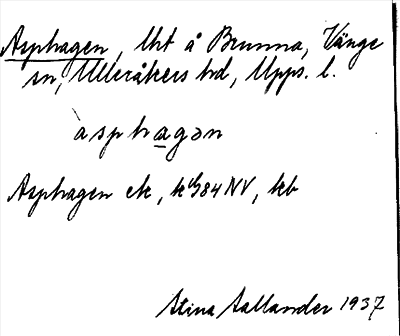 Asphagen, lht å Brunna, Vänge
sn, Ulleråkers hd, Upps. l.
àsphagən
Asphagen ek, 984 NV, kb
Stina Sallander 1937